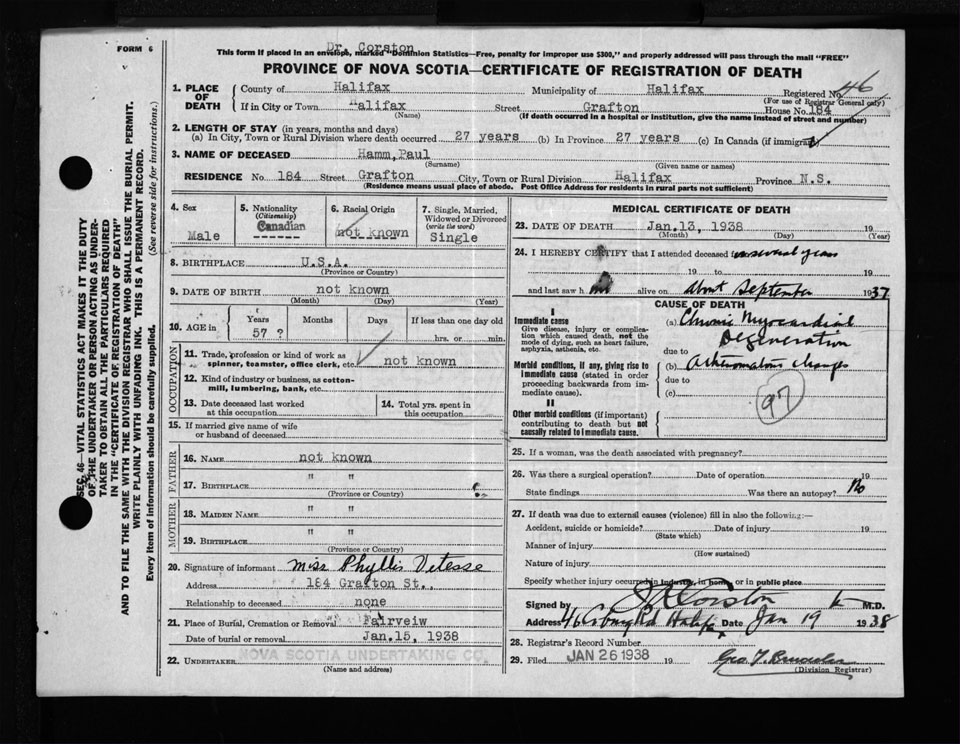 FORM 6
Dr. Corston
This form if placed in an envelope, marked "Dominion Statistics—Free, penalty for improper use $300," and properly addressed will pass through the mail "FREE"
PROVINCE OF NOVA SCOTIA—CERTIFICATE OF REGISTRATION OF DEATH
1. PLACE OF DEATH
County of Halifax Municipality of Halifax Registered No. 46
(For use of Registrar General only)
If in City or Town Halifax Street Grafton House No. 184
(Name) (If death occurred in a hospital or institution, give the name instead of street and number)
2. LENGTH OF STAY (in years, months and days)
(a) In City, Town or Rural Division where death occurred 27 years (b) In Province 27 years (c) In Canada (if immigrant)
3. NAME OF DECEASED Hamm, Paul
(Surname) (Given name or names)
RESIDENCE No. 184 Street Grafton City, Town or Rural Division Halifax Province N.S.
(Residence means usual place of abode. Post Office Address for residents in rural parts not sufficient)
4. Sex
Male
5. Nationality
(Citizenship)
Canadian
6. Racial Origin
not known
7. Single, Married, Widowed or Divorced
(write the word)
Single
8. BIRTHPLACE U.S.A.
(Province or Country)
9. DATE OF BIRTH not known
(Month) (Day) (Year)
10. AGE in
Years Months Days If less than one day old
57 ? hrs. or min.
OCCUPATION
11. Trade, profession or kind of work as spinner, teamster, office clerk, etc. not known
12. Kind of industry or business, as cotton-mill, lumbering, bank, etc.
13. Date deceased last worked at this occupation
14. Total yrs. spent in this occupation
15. If married give name of wife or husband of deceased
FATHER
16. NAME not known
17. BIRTHPLACE " "
(Province or Country)
MOTHER
18. MAIDEN NAME " "
19. BIRTHPLACE " "
(Province or Country)
20. Signature of informant Miss Phyllis Vitesse
Address 184 Grafton St.,
Relationship to deceased none
21. Place of Burial, Cremation or Removal Fairveiw
Date of burial or removal Jan.15, 1938
22. UNDERTAKER NOVA SCOTIA UNDERTAKING CO.
(Name and address)
MEDICAL CERTIFICATE OF DEATH
23. DATE OF DEATH Jan.13, 1938 19
(Month) (Day) (Year)
24. I HEREBY CERTIFY that I attended deceased several years
19 to 19
and last saw h alive on about September 1937
CAUSE OF DEATH
I
Immediate cause
Give disease, injury or complication which caused death, not the mode of dying, such as heart failure, asphyxia, asthenia, etc.
(a) Chronic Myocardial
Degeneration
due to
Morbid conditions, if any, giving rise to immediate cause (stated in order proceeding backwards from immediate cause).
(b) Atheromatous changes
due to
(c)
97
II
Other morbid conditions (if important) contributing to death but not causally related to immediate cause.
25. If a woman, was the death associated with pregnancy?
26. Was there a surgical operation? Date of operation 19
State findings Was there an autopsy? No
27. If death was due to external causes (violence) fill in also the following:—
Accident, suicide or homicide? Date of injury 19
(State which)
Manner of injury
(How sustained)
Nature of injury
Specify whether injury occurred in industry, in home, or in public place
Signed by Corston M.D.
Address 46 Rd Halifx Date Jan 19 1938
28. Registrar's Record Number
29. Filed JAN 26 1938 19
(Division Registrar)
SEC. 46—VITAL STATISTICS ACT MAKES IT THE DUTY
OF THE UNDERTAKER OR PERSON ACTING AS UNDER-
TAKER TO OBTAIN ALL THE PARTICULARS REQUIRED
IN THE "CERTIFICATE OF REGISTRATION OF DEATH"
AND TO FILE THE SAME WITH THE DIVISION REGISTRAR WHO SHALL ISSUE THE BURIAL PERMIT.
WRITE PLAINLY WITH UNFADING INK. THIS IS A PERMANENT RECORD.
Every item of information should be carefully supplied. (See reverse side for instructions.)